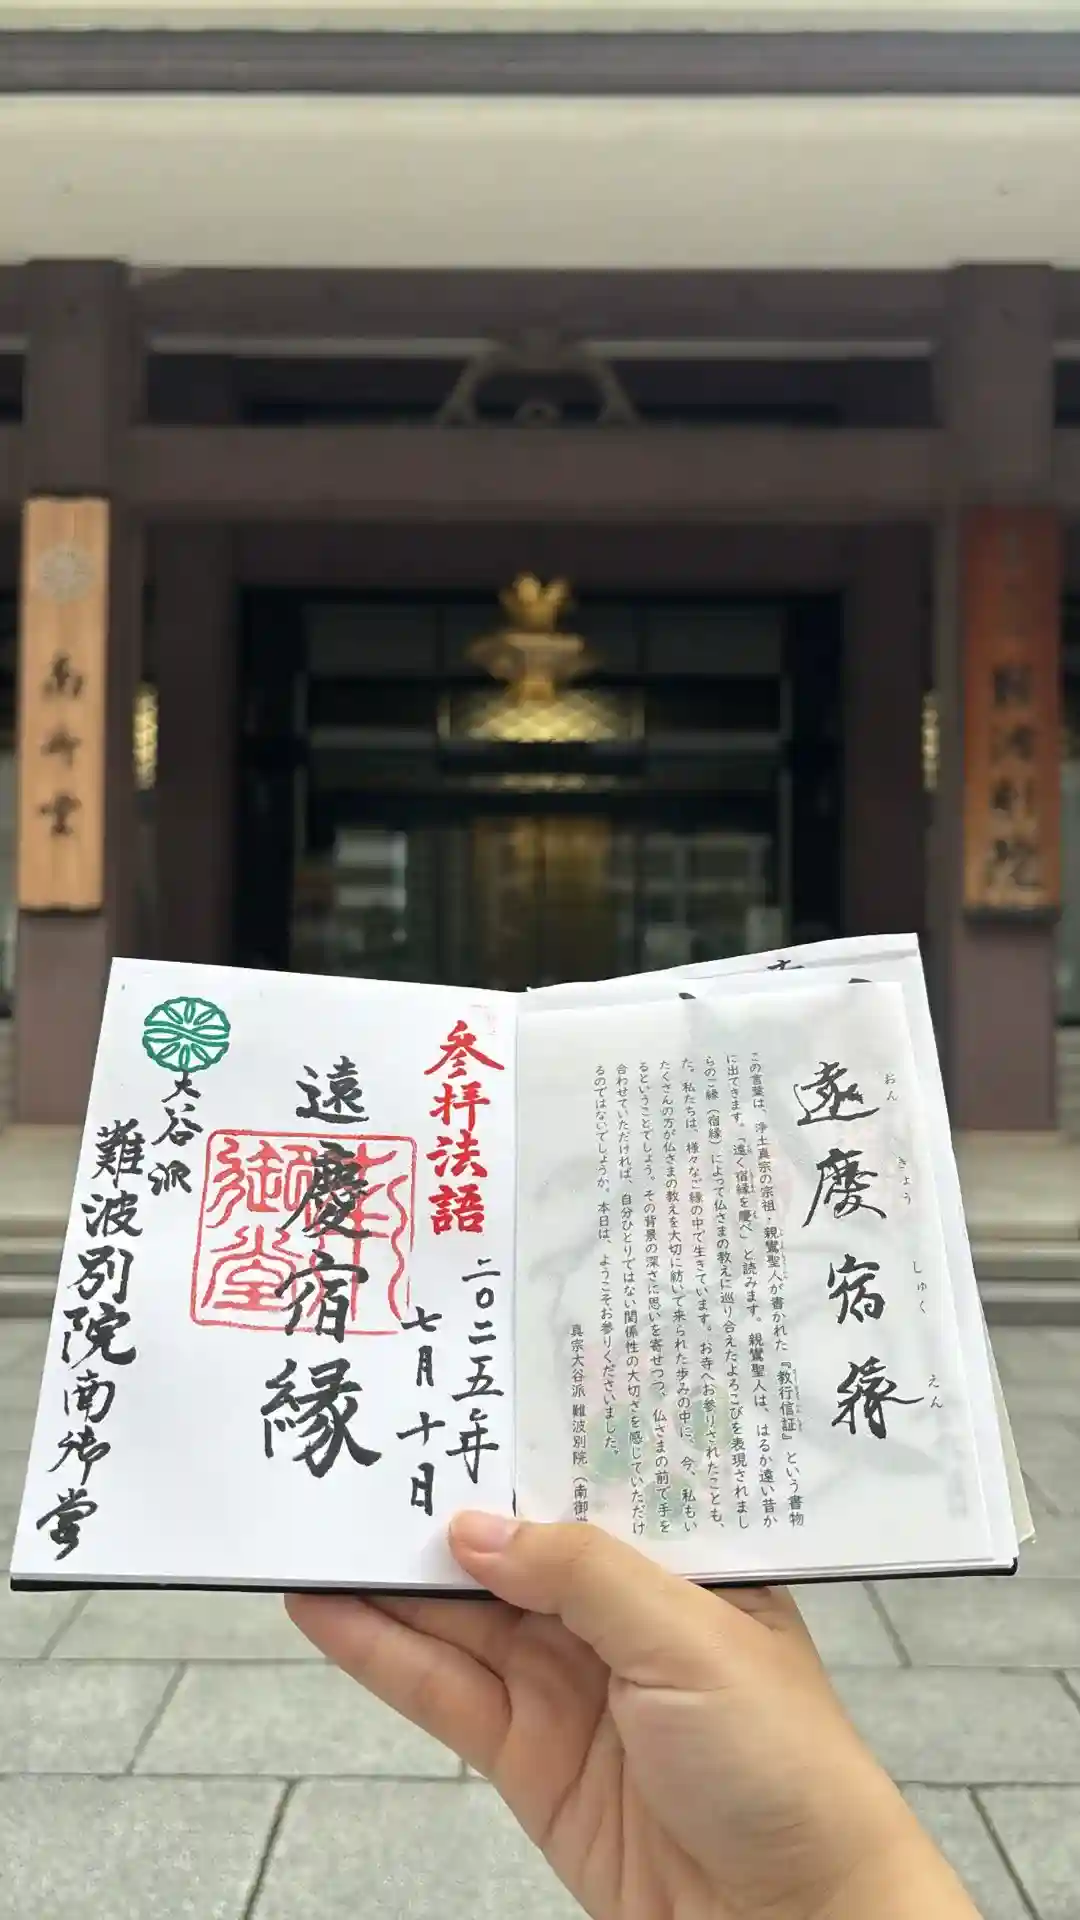 南御堂
難波別院
遠慶宿縁
おん
きょう
しゅく
えん
この言葉は、浄土真宗の宗祖・親鸞聖人が書かれた『教行信証』という書物
に出てきます。「遠く宿縁を慶べ」と読みます。親鸞聖人は、はるか遠い昔か
らのご縁（宿縁）によって仏さまの教えに巡り合えたよろこびを表現されまし
た。私たちは、様々なご縁の中で生きています。お寺へお参りされたことも、
たくさんの方が仏さまの教えを大切に紡いで来られた歩みの中に、今、私もい
るということでしょう。その背景の深さに思いを寄せつつ、仏さまの前で手を
合わせていただければ、自分ひとりではない関係性の大切さを感じていただけ
るのではないでしょうか。本日は、ようこそお参りくださいました。
真宗大谷派 難波別院（南御
参拝法語
二〇二五年
七月十日
遠慶宿縁
南御堂
大谷派
難波別院南御堂